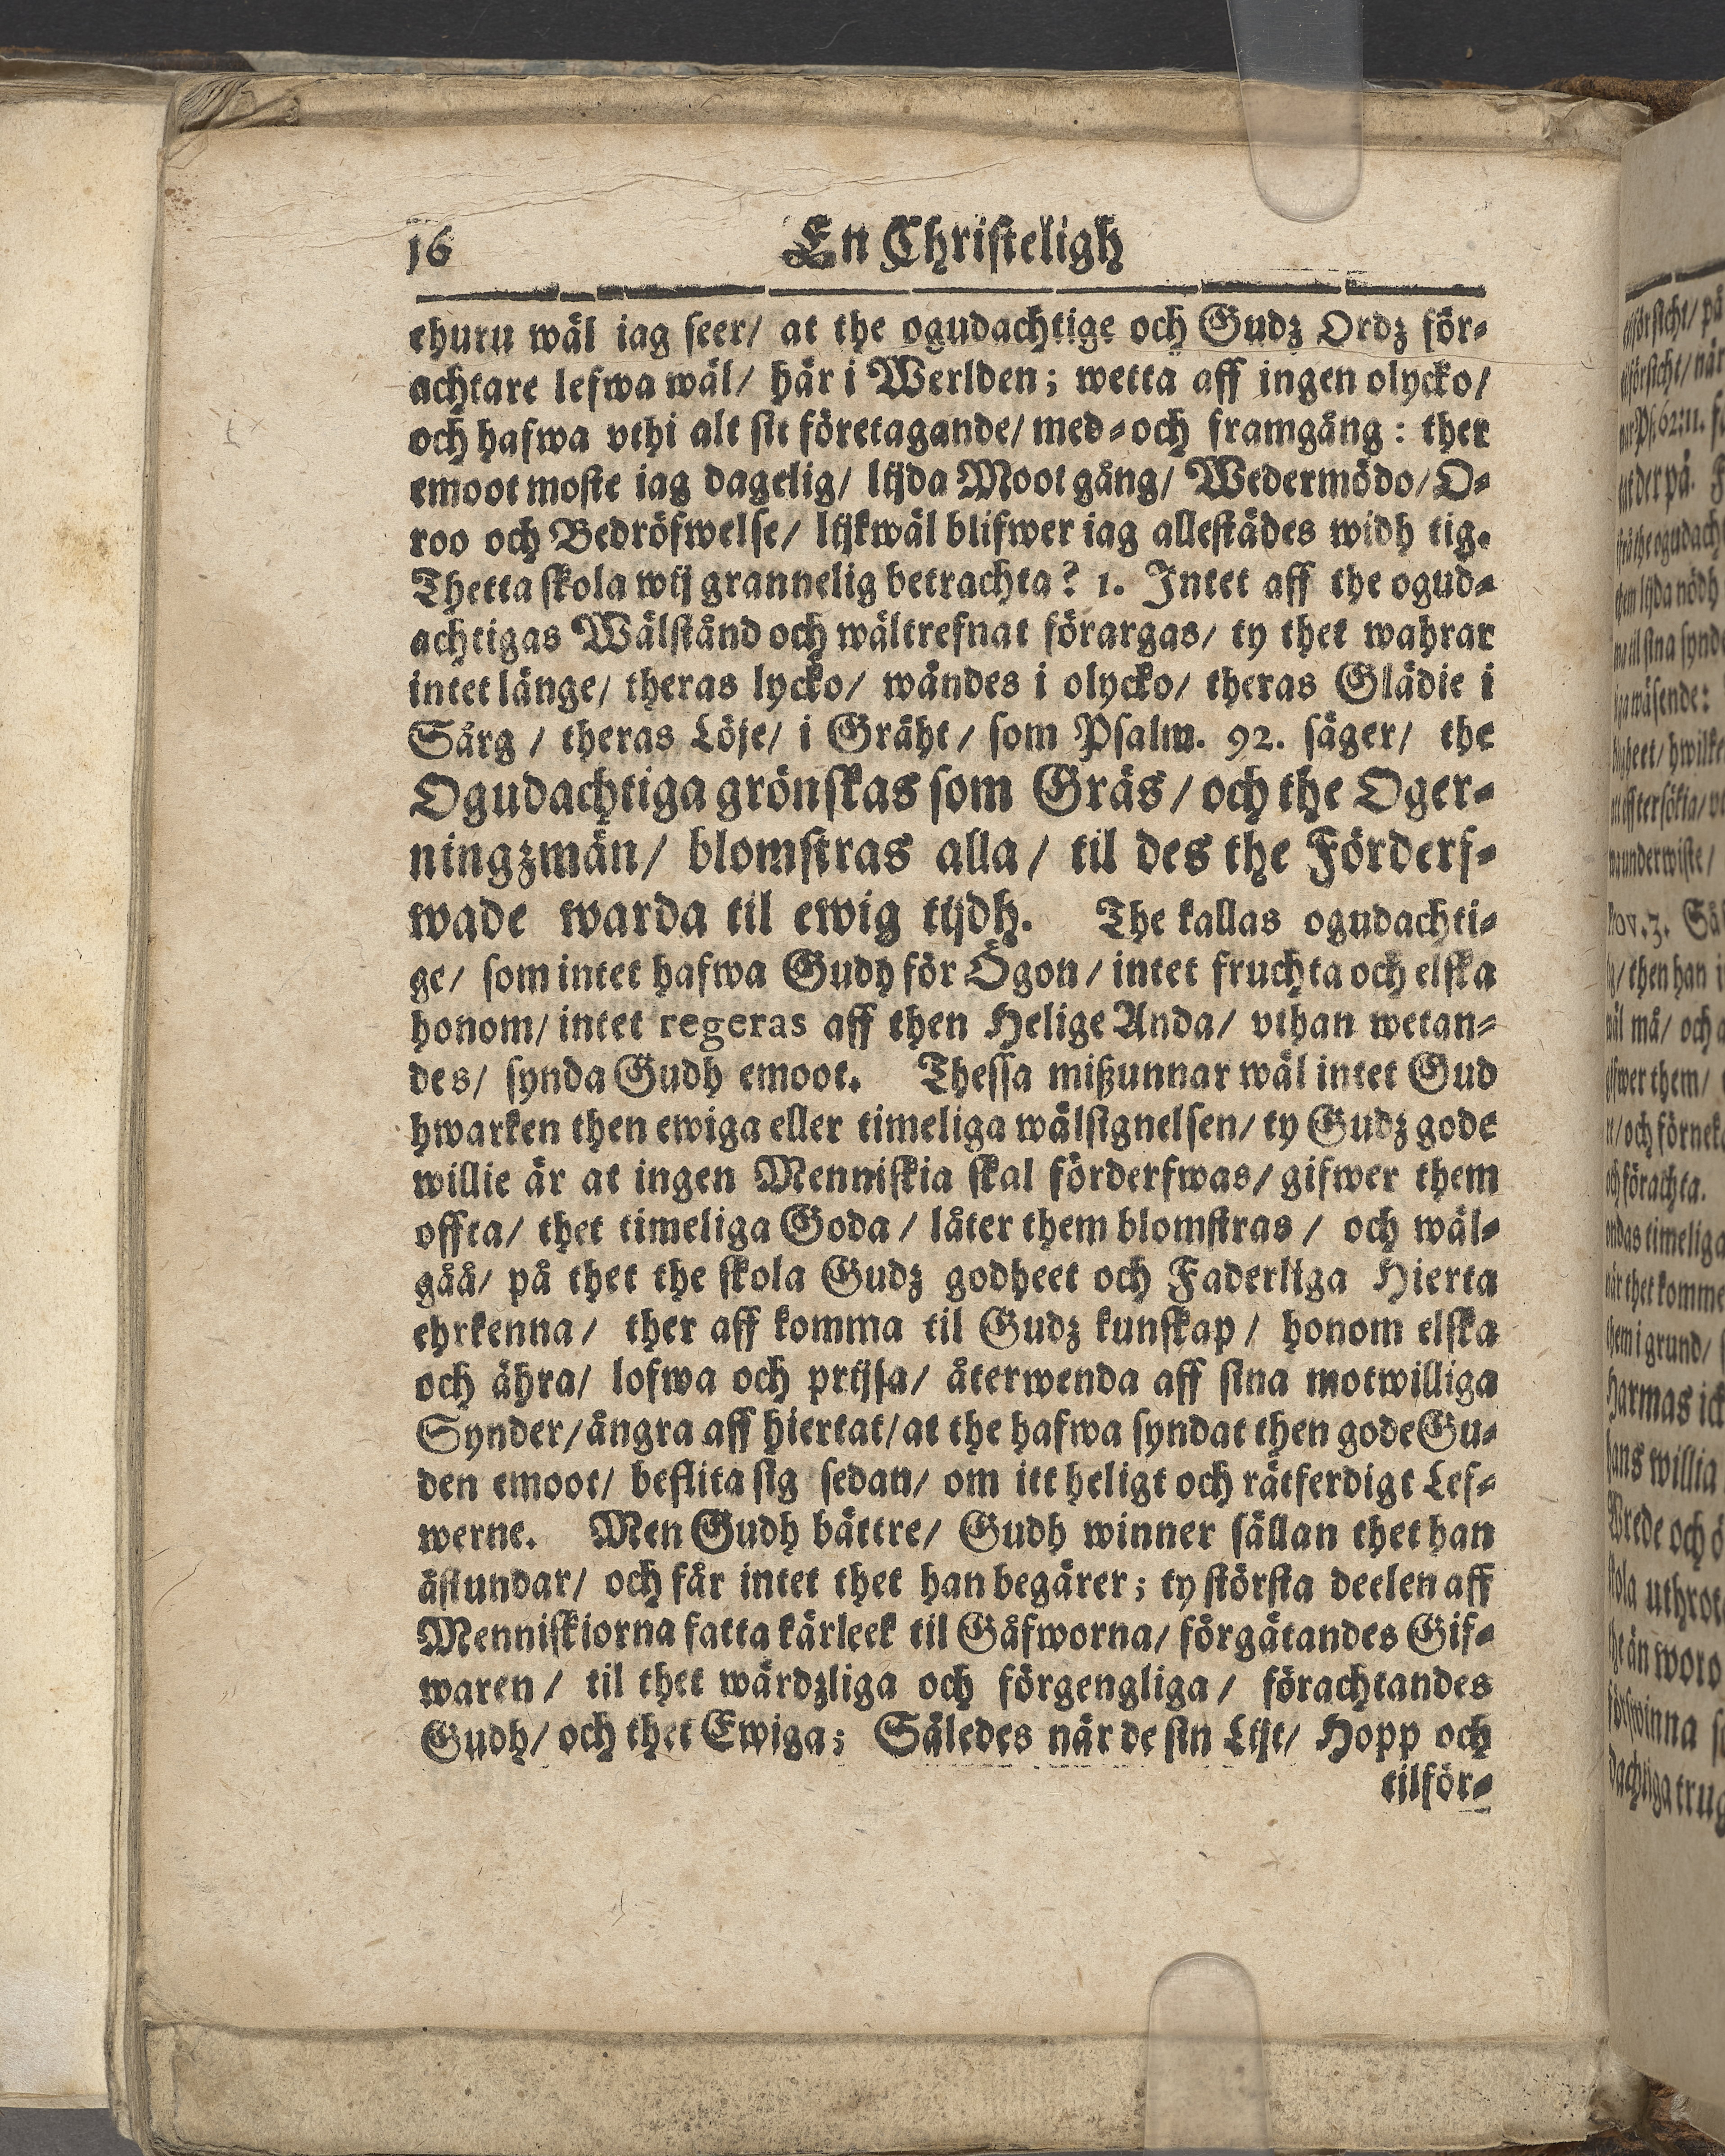 16 En Christeligh
ehuru wäl iag seer/ at the ogudachtige och Gudz Ordz för-
achtare lefwa wäl/ här i Werlden; wetta aff ingen olycko/
och hafwa vthi alt sit företagande/ med-och framgång: ther
emoot moste iag dagelig/ lijda Moot gång/ Wedermödo/ O-
roo och Bedröfwelse/ lijkwäl blifwer iag allestädes widh tig.
Thetta skola wij grannelig betrachta? 1. Intet aff the ogud-
achtigas Wälstånd och wältrefnat förargas/ ty thet wahrar
intet länge/ theras lycko/ wändes i olycko/ theras Glädie i
Sårg / theras Löje/ i Gräht / som Psalm. 92. säger/ the
Ogudachtiga grönskas som Gräs / och the Oger-
ningzmän/ blomstras alla / til des the Förderf-
wade warda til ewig tijdh. The kallas ogudachti-
ge/ som intet hafwa Gudh för Ögon / intet fruchta och elska
honom/ intet regeras aff then Helige Anda/ vthan wetan-
des/ synda Gudh emoot. Thessa mißunnar wäl intet Gud
hwarken then ewiga eller timeliga wälsignelsen/ ty Gudz gode
willie är at ingen Menniskia skal förderfwas/ gifwer them
offta/ thet timeliga Goda / låter them blomstras / och wäl-
gåå/ på thet the skola Gudz godheet och Faderliga Hierta
ehrkenna/ ther aff komma til Gudz kunskap/ honom elska
och ähra/ lofwa och prijsa/ återwenda aff sina motwilliga
Synder/ ångra aff hiertat/ at the hafwa syndat then gode Gu-
den emoot/ beflita sig sedan/ om itt heligt och rätferdigt Lef-
werne. Men Gudh bättre/ Gudh winner sällan thet han
åstundar/ och får intet thet han begärer; ty största deelen aff
Menniskiorna fatta kärleek til Gåfworna/ förgätandes Gif-
waren / til thet wärdzliga och förgengliga / förachtandes
Gudh/ och thet Ewiga; Således när de sin Lijt/ Hopp och
tilför-